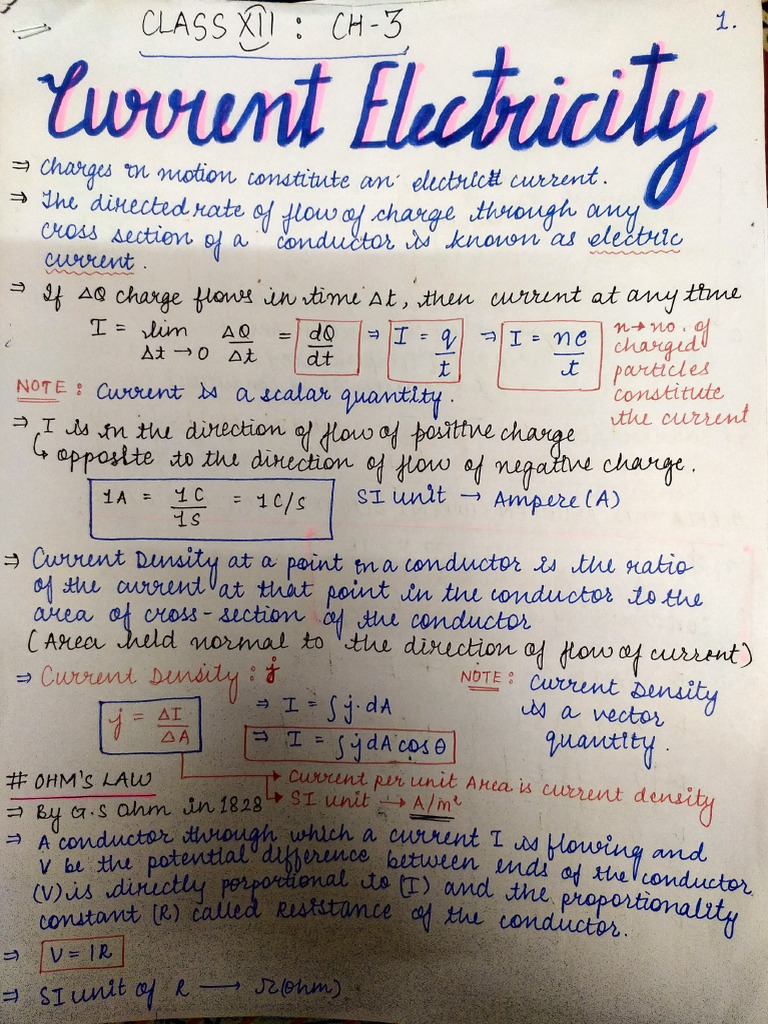 CLASS XII : CH-3
1.
Current Electricity
⇒ Charges in motion constitute an electric current.
⇒ The directed rate of flow of charge through any
cross section of a conductor is known as electric
current.
⇒ If ΔQ charge flows in time Δt, then current at any time
I = lim Δt→0 ΔQ/Δt = dQ/dt ⇒ I = q/t ⇒ I = ne/t
n→no. of
charged
particles
constitute
the current
NOTE: Current is a scalar quantity.
⇒ I is in the direction of flow of positive charge
↳ opposite to the direction of flow of negative charge.
1A = 1C/1S = 1C/S SI unit → Ampere (A)
⇒ Current Density at a point in a conductor is the ratio
of the current at that point in the conductor to the
area of cross-section of the conductor
(Area held normal to the direction of flow of current)
⇒ Current Density : j
j = ΔI/ΔA
⇒ I = ∫j·dA
⇒ I = ∫jdA cosθ
NOTE: Current Density
is a vector
quantity.
→ Current per unit Area is current density
→ SI unit → A/m²
# OHM'S LAW
⇒ By G.S Ohm in 1828
⇒ A conductor through which a current I is flowing and
V be the potential difference between ends of the conductor
(V) is directly porportional to (I) and the proportionality
constant (R) called Resistance of the conductor.
⇒ V = IR
⇒ SI unit of R → Ω(ohm)